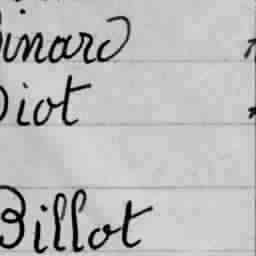 inard
iot
Billot